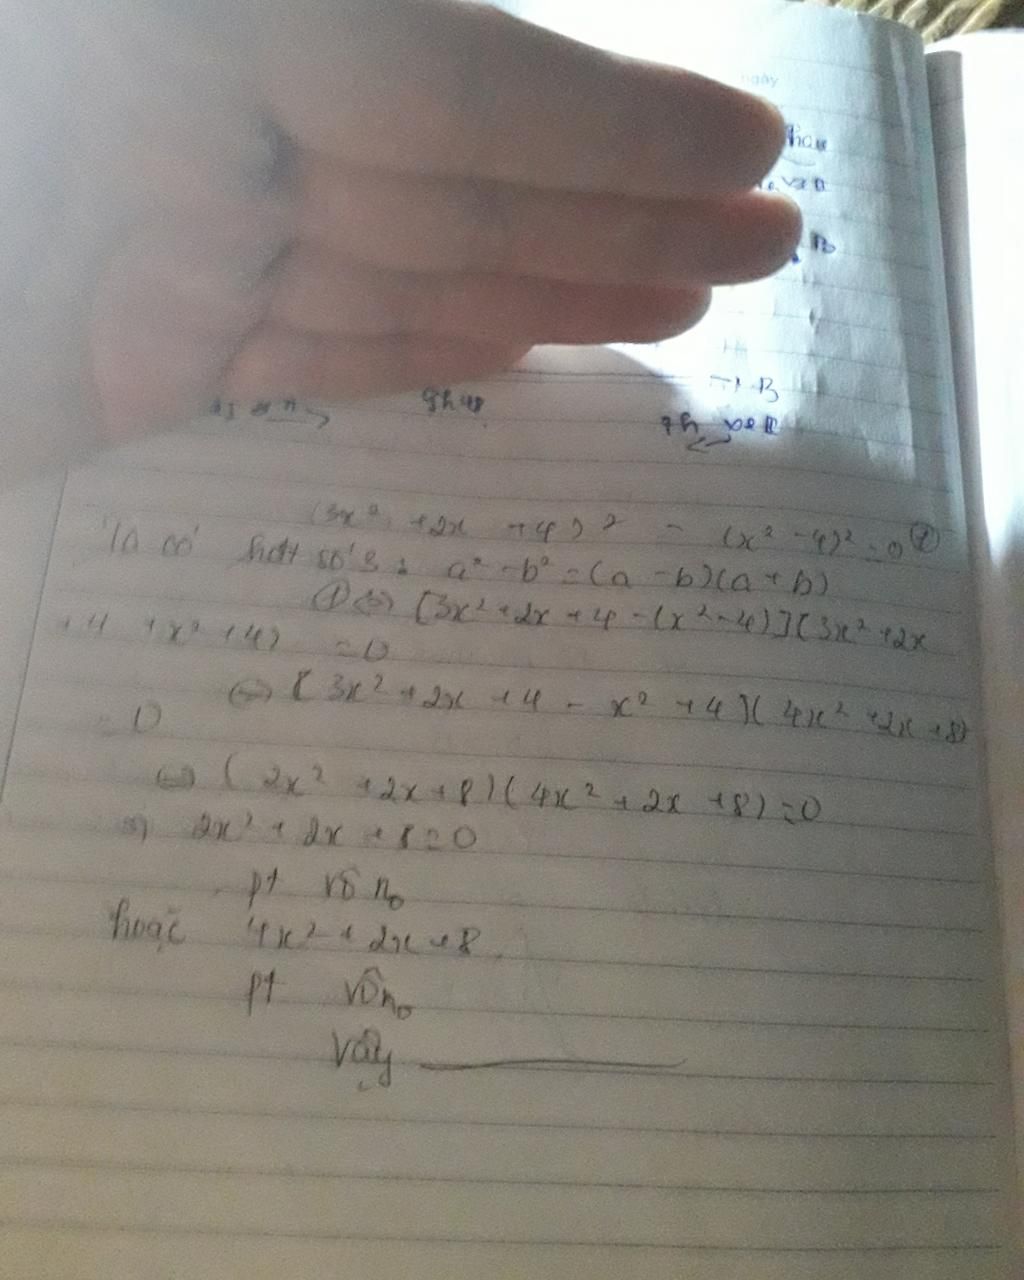 ngày
B
(3x² + 2x + 4)² - (x² - 4)² = 0 ①
Ta có hđt số 3 : a² - b² = (a - b)(a + b)
① ⇔ [3x² + 2x + 4 - (x² - 4)][3x² + 2x
+ 4 + x² + 4) = 0
⇔ [3x² + 2x + 4 - x² + 4)(4x² + 2x + 8)
= 0
⇔ (2x² + 2x + 8)(4x² + 2x + 8) = 0
⇒ 2x² + 2x + 8 = 0
pt vô n₀
hoặc 4x² + 2x + 8
pt vô n₀
Vậy